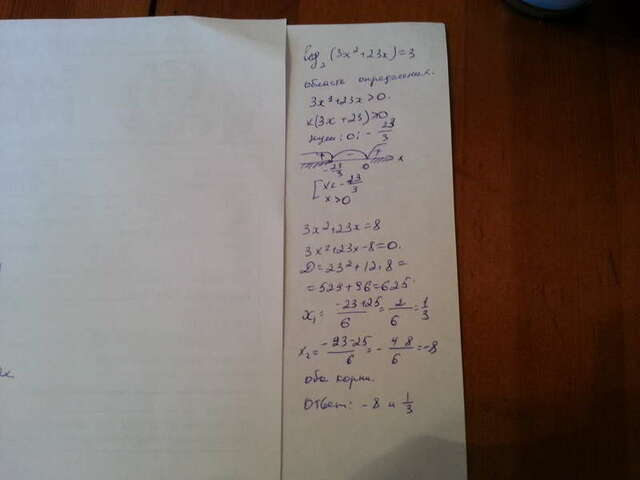 log₂(3x²+23x)=3
область определения.
3x²+23x>0.
x(3x+23)>0
нули: 0; -23/3
+ - +
-23/3 0 x
[x<-23/3
x>0
3x²+23x=8
3x²+23x-8=0.
D=23²+12·8=
=529+96=625.
x₁= (-23+25)/6 = 2/6 = 1/3
x₂= (-23-25)/6 = -48/6 = -8
оба корни.
Ответ: -8 и 1/3